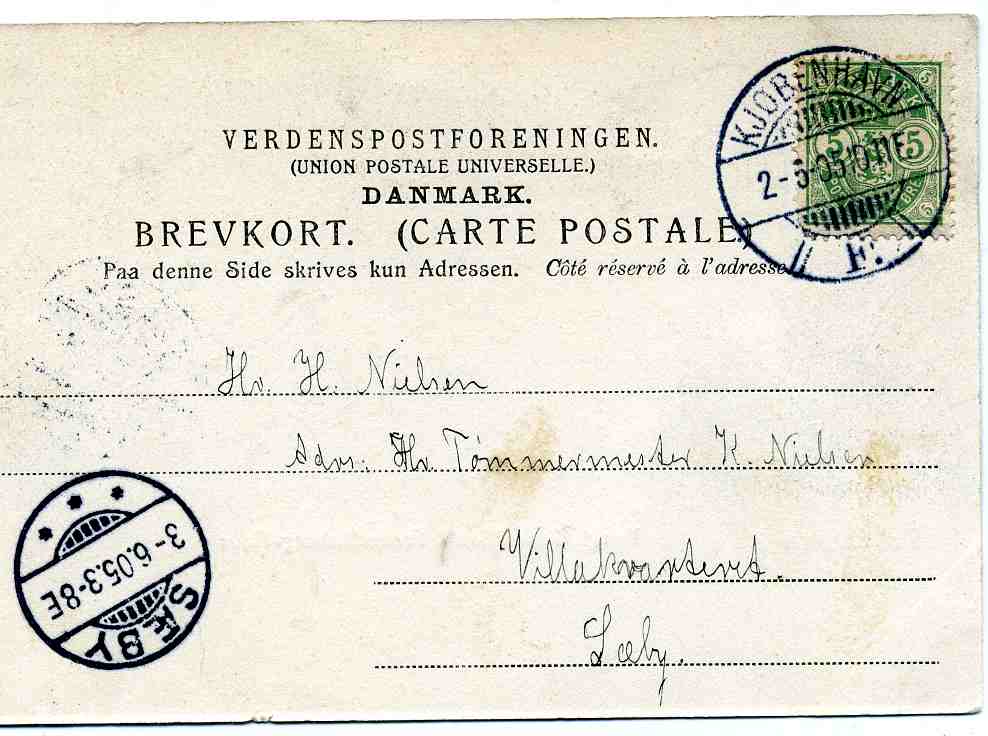 VERDENSPOSTFORENINGEN.
(UNION POSTALE UNIVERSELLE.)
DANMARK.
BREVKORT. (CARTE POSTALE)
Paa denne Side skrives kun Adressen. Côté réservé à l'adresse
KJØBENHAVN
F.
5 5
ØRE
Hr. H. Nielsen
Adrs: Hr. Tømmermester K. Nielsen
Villakvarteret.
Sæby.
3-6.05.3-8E
SÆBY